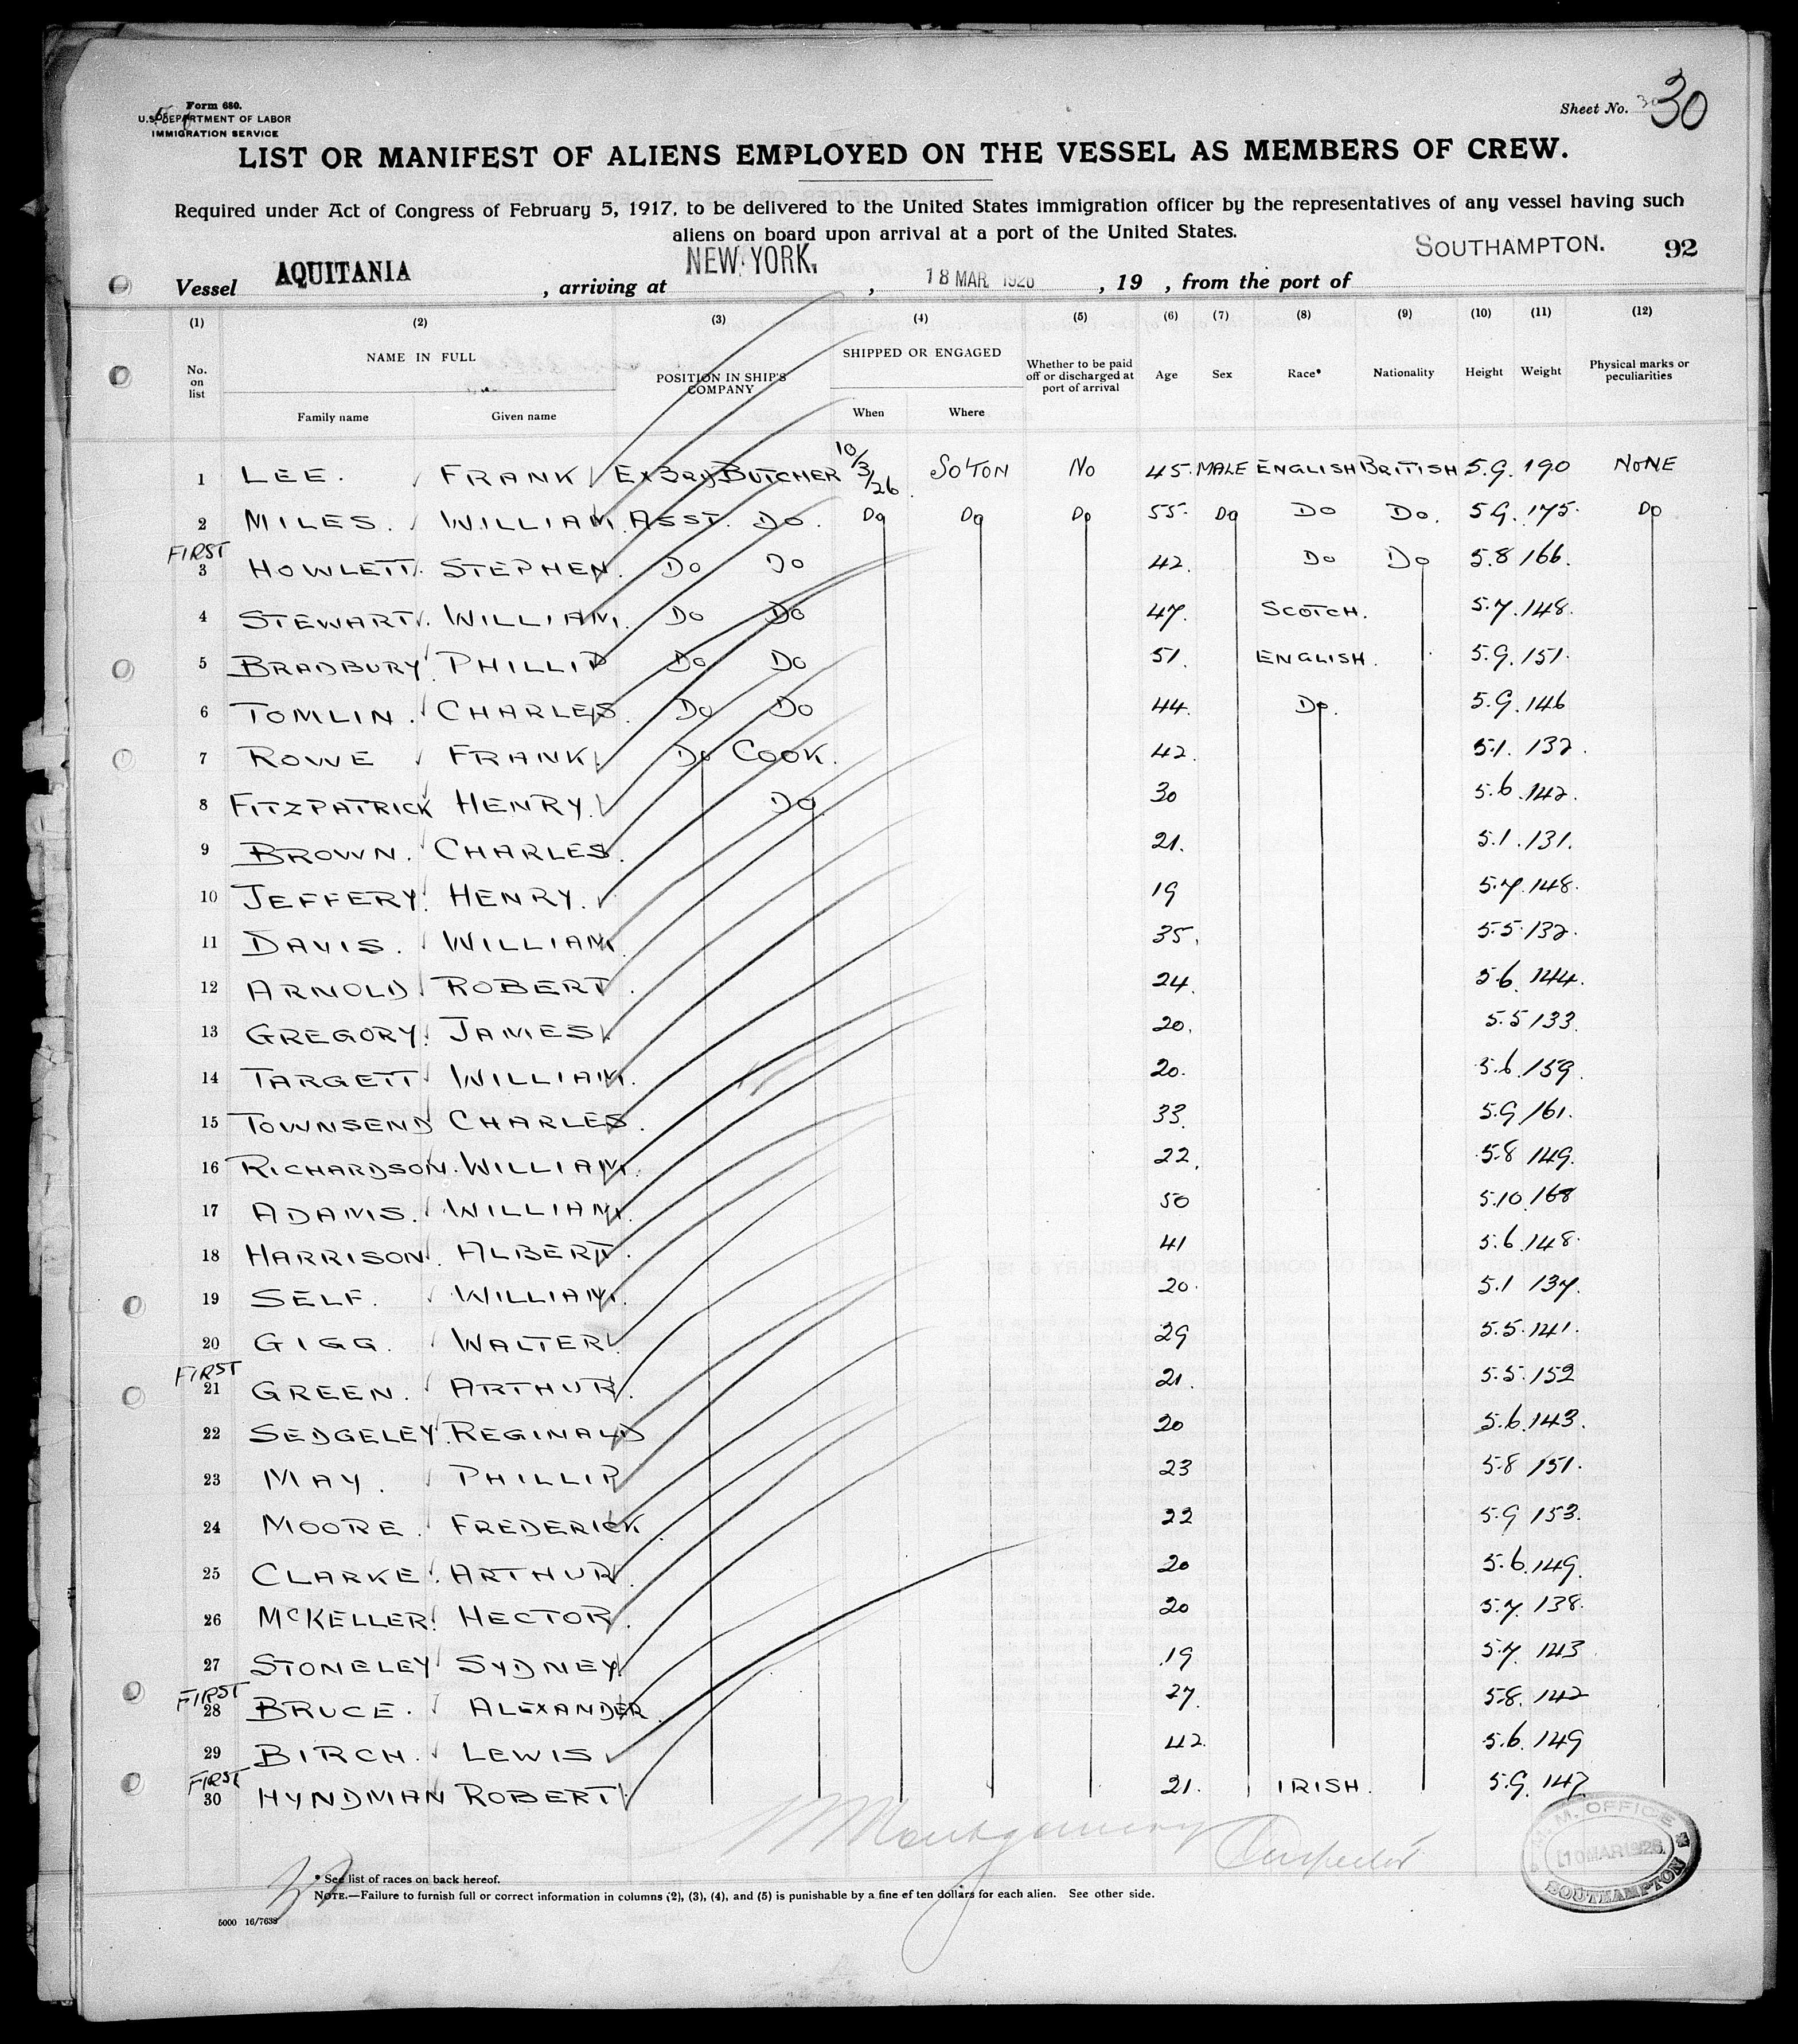 Form 680.
U.S. DEPARTMENT OF LABOR
IMMIGRATION SERVICE
Sheet No. 30
LIST OR MANIFEST OF ALIENS EMPLOYED ON THE VESSEL AS MEMBERS OF CREW.
Required under Act of Congress of February 5, 1917, to be delivered to the United States immigration officer by the representatives of any vessel having such
aliens on board upon arrival at a port of the United States.
92
Vessel AQUITANIA, arriving at NEW YORK, 18 MAR 1926, 19 , from the port of SOUTHAMPTON.
(1) (2) (3) (4) (5) (6) (7) (8) (9) (10) (11) (12)
No. on list NAME IN FULL Family name Given name POSITION IN SHIP'S COMPANY SHIPPED OR ENGAGED When Where Whether to be paid off or discharged at port of arrival Age Sex Race* Nationality Height Weight Physical marks or peculiarities
1 LEE. FRANK Ex 3rd BUTCHER 10/3/26 SO'TON NO 45. MALE ENGLISH BRITISH 5.9. 190 NONE
2 MILES. WILLIAM. ASST. DO. DO DO DO 55. DO DO DO. 5 9. 175. DO
FIRST
3 HOWLETT. STEPHEN. DO DO 42. DO DO 5.8 166.
4 STEWART. WILLIAM. DO DO 47. SCOTCH. 5.7. 148.
5 BRADBURY. PHILLIP DO DO 51. ENGLISH. 5.9. 151.
6 TOMLIN. CHARLES. DO DO 44. DO. 5.9. 146
7 ROWE FRANK DO COOK. 42. 5.1. 132.
8 FITZPATRICK HENRY. DO 30 5.6. 142.
9 BROWN. CHARLES. 21. 5.1. 131.
10 JEFFERY. HENRY. 19 5.7. 148.
11 DAVIS. WILLIAM 35. 5.5. 132.
12 ARNOLD ROBERT. 24. 5.6. 144.
13 GREGORY. JAMES. 20. 5.5 133.
14 TARGETT WILLIAM. 20. 5.6. 159.
15 TOWNSEND CHARLES. 33. 5.9 161.
16 RICHARDSON. WILLIAM. 22. 5.8 149.
17 ADAMS. WILLIAM. 50 5.10. 168
18 HARRISON. ALBERT. 41 5.6. 148.
19 SELF. WILLIAM. 20. 5.1 137.
20 GIGG. WALTER. 29 5.5. 141.
FIRST
21 GREEN. ARTHUR. 21. 5.5. 152
22 SEDGELEY. REGINALD 20 5.6. 143.
23 MAY. PHILLIP 23 5.8 151.
24 MOORE. FREDERICK. 22 5.9 153.
25 CLARKE. ARTHUR. 20 5.6. 149.
26 McKELLER. HECTOR. 20 5.7. 138.
27 STONELEY SYDNEY 19 5.7. 143
FIRST
28 BRUCE. ALEXANDER. 27. 5.8. 142
29 BIRCH. LEWIS 42. 5.6. 149
FIRST
30 HYNDMAN ROBERT 21. IRISH. 5.9. 147
Montgomery Inspector
M. M. OFFICE
10 MAR 1926
SOUTHAMPTON
30
* See list of races on back hereof.
NOTE.—Failure to furnish full or correct information in columns (2), (3), (4), and (5) is punishable by a fine of ten dollars for each alien. See other side.
5000 16/7633